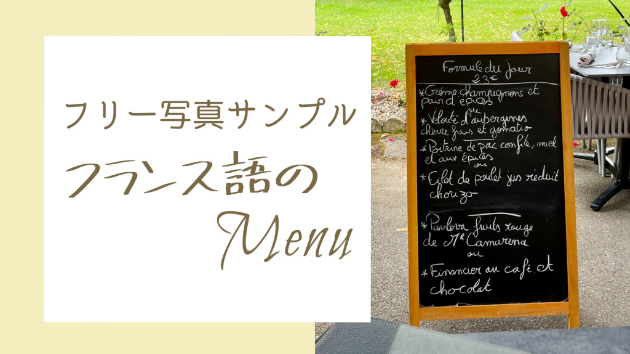 フリー写真サンプル
フランス語の
Menu
Formule du jour
23€
*Crème champignons et
pain d'épices
ou
*Velouté d'aubergines
chèvre frais et
*Poitrine de porc confite, miel
et aux épices
ou
*Filet de poulet jus réduit
chorizo
*Pavlova fruits rouge
de
ou
*Financier au café et
chocolat